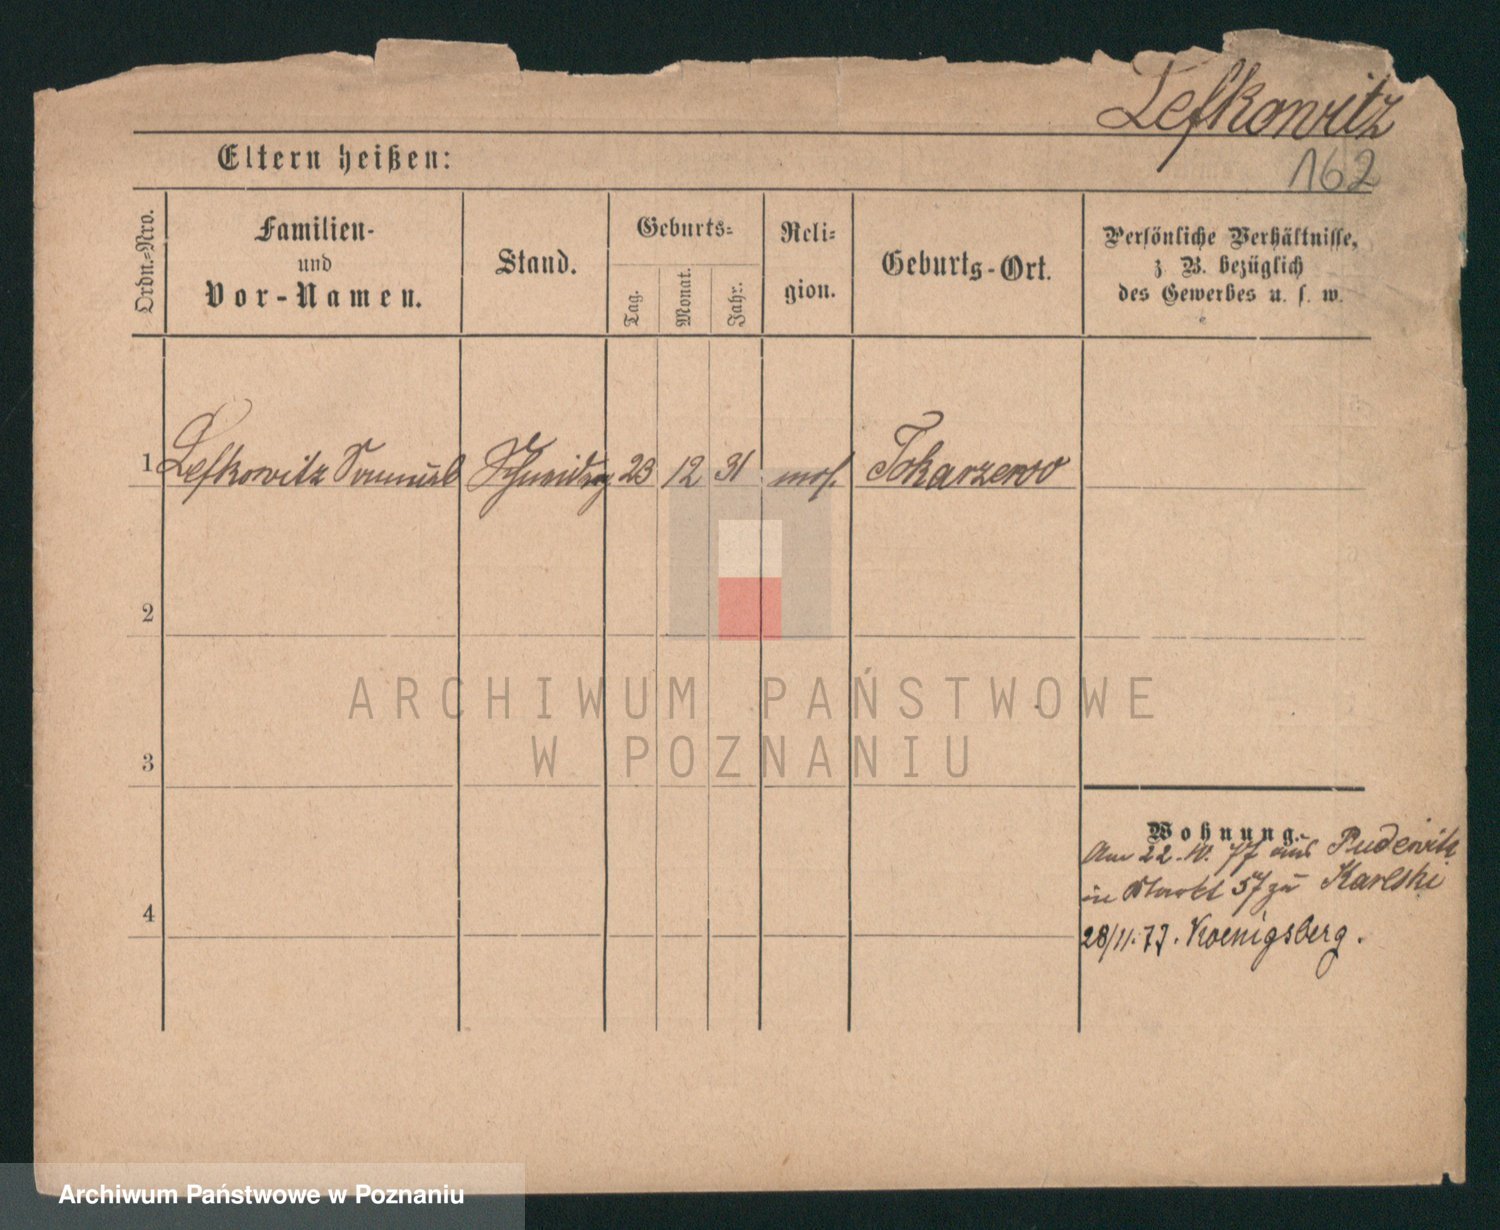 Lefkowitz
162
Eltern heißen:
Ordn.=Nro.
Familien-
und
Vor-Namen.
Stand.
Geburts=
Tag.
Monat.
Jahr.
Reli=
gion.
Geburts-Ort.
Persönliche Verhältnisse,
z B. bezüglich
des Gewerbes u. s. w.
1 Lefkowitz Samuel 23 12 31 mos. Tokarzewo
2
3
4
Wohnung.
Am 22.10.77 aus Pudewitz
in Markt 57 zu Karlski
28/11.77. Koenigsberg.
ARCHIWUM PAŃSTWOWE
W POZNANIU
Archiwum Państwowe w Poznaniu